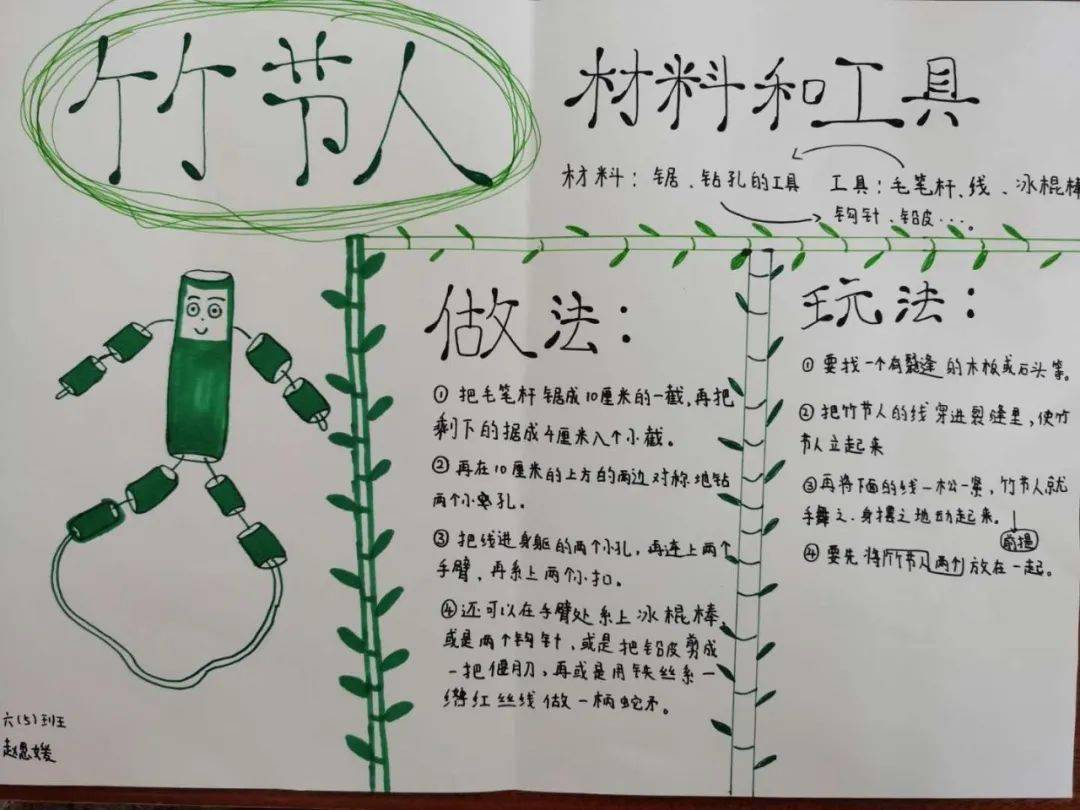 竹节人
材料和工具
材料：锯、钻孔的工具 工具：毛笔杆、线、冰棍棒
钩针、铅皮…。
做法：
①把毛笔杆锯成10厘米的一截，再把
剩下的据成4厘米八个小截。
②再在10厘米的上方的两边对称地钻
两个小孔。
③把线进身躯的两个小孔，再连上两个
手臂，再系上两个小扣。
④还可以在手臂处系上冰棍棒，
或是两个钩针，或是把铅皮剪成
一把偃月刀，再或是用铁丝系一
绺红丝线做一柄蛇矛。
玩法：
①要找一个有裂缝的木板或石头等。
②把竹节人的线穿进裂缝里，使竹
节人立起来
③再将下面的线一松一紧，竹节人就
手舞之、身摆之地动起来。
前提
④要先将竹节人两个放在一起。
六(5)班
赵思媛